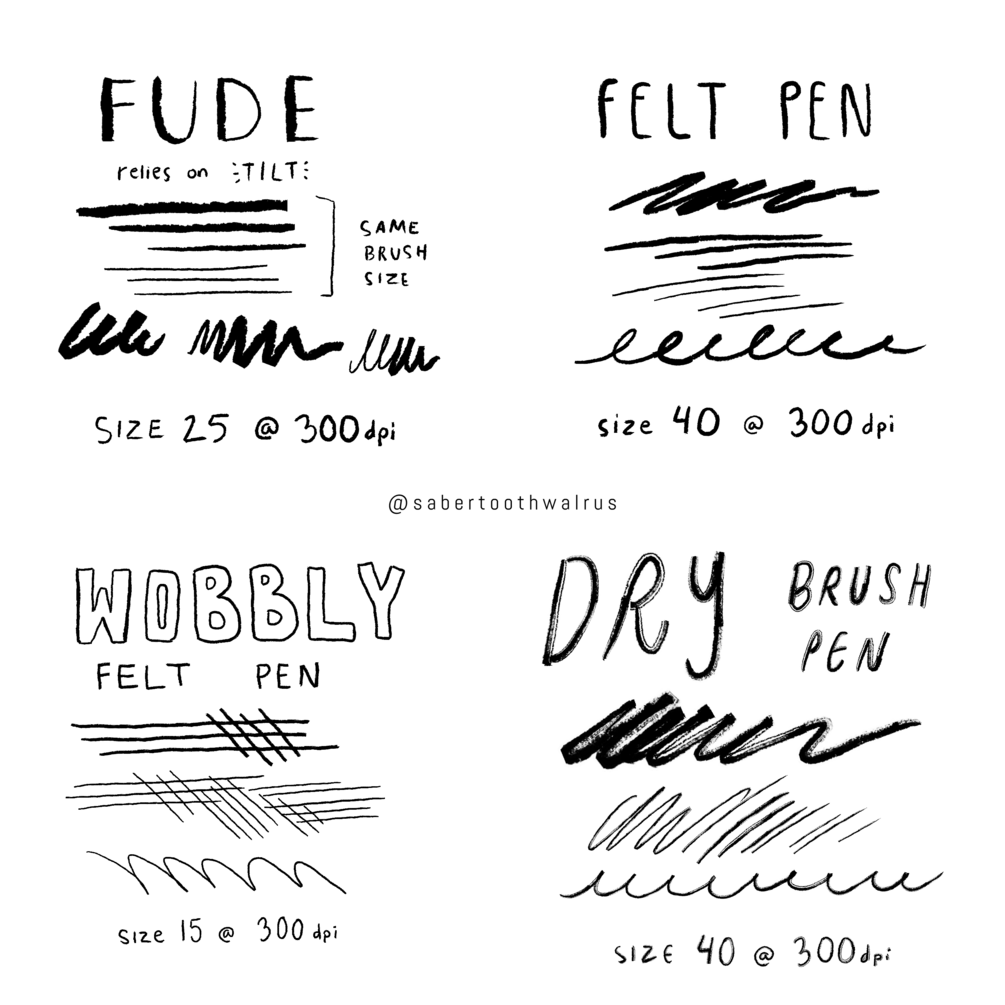 FUDE
relies on TILT
SAME
BRUSH
SIZE
SIZE 25 @ 300dpi
FELT PEN
size 40 @ 300 dpi
@sabertoothwalrus
WOBBLY
FELT PEN
SIZE 15 @ 300 dpi
DRY BRUSH
PEN
SIZE 40 @ 300dpi